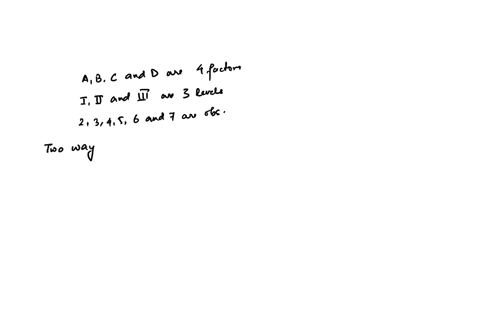 A, B. C and D are 4 factors
I, II and III are 3 levels
2, 3, 4, 5, 6 and 7 are obs.
Two way